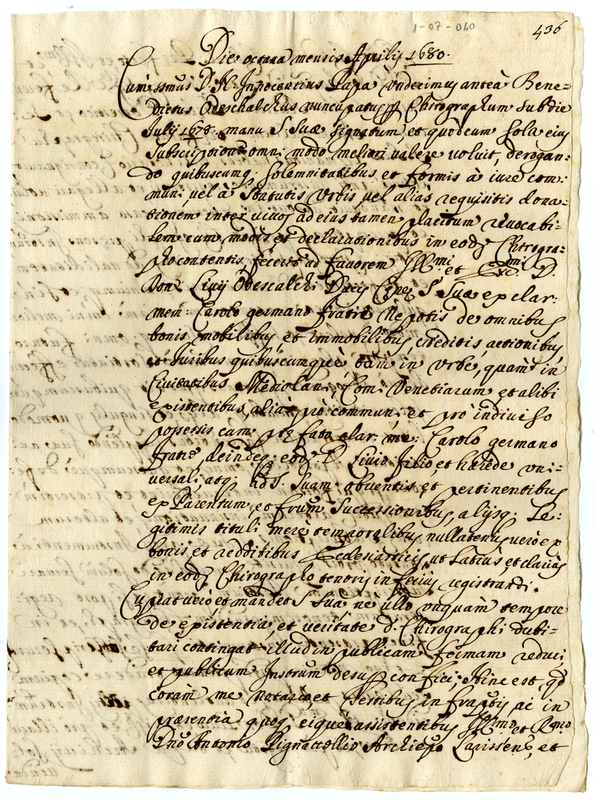 1-07-040
436
Die octava mensis Aprilis 1680.
Cum SSmus D. N. Innocentius Papa undecimus antea Bene=
dictus Odeschalchus nuncupatus per Chirographum sub die
Julij 1678. manu S. Suae signatum, et quod cum sola eius
subscriptione omni modo meliori valere voluit, derogan=
do quibuscumq solemnitatibus et formis à iure com=
muni vel à statutis Urbis vel alias requisitis dona=
tionem inter vivos ad eius tamen placitum revocabi=
lem cum modis et declarationibus in eod Chirogra=
pho contentis fecerit ad favorem Illmi et Excmi D.
Don Livij Odescalchi S. Suae ex clar:
mem: Carolo germano fratre Nepotis de omnibus
bonis mobilibus et immobilibus creditis actionibus
et Juribus quibuscumque tam in Urbe, quam in
Civitatibus Mediolani, Comi Venetiarum et alibi
existentibus, alias pro communi et pro indiviso
possessis cum praefato clar: me: Carolo germano
fratre deinde eod D. Livio filio et haerede uni=
versali atq ad S. Suam obventis et pertinentibus
ex Parentum, et frum successionibus alijsq Le=
gitimis titulis mere temporalibus, nullatenus vero ex
bonis et redditibus Ecclesiasticis, ut latius et clarius
in eod Chirographo tenoris inferius registrandi.
Cupiat vero et mandet S. Sua ne ullo unquam tempore
de existentia, et veritate d. Chirographi dubi=
tari contingat illud in publicam formam reduci,
et publicum Instrum desup confici. Hinc est qd
coram me notario, et testibus infraptis ac in
praesentia quoq eique assistentibus Illmo et Rmo
Dno Antonio Pignattellio Archiepo Larissens, et